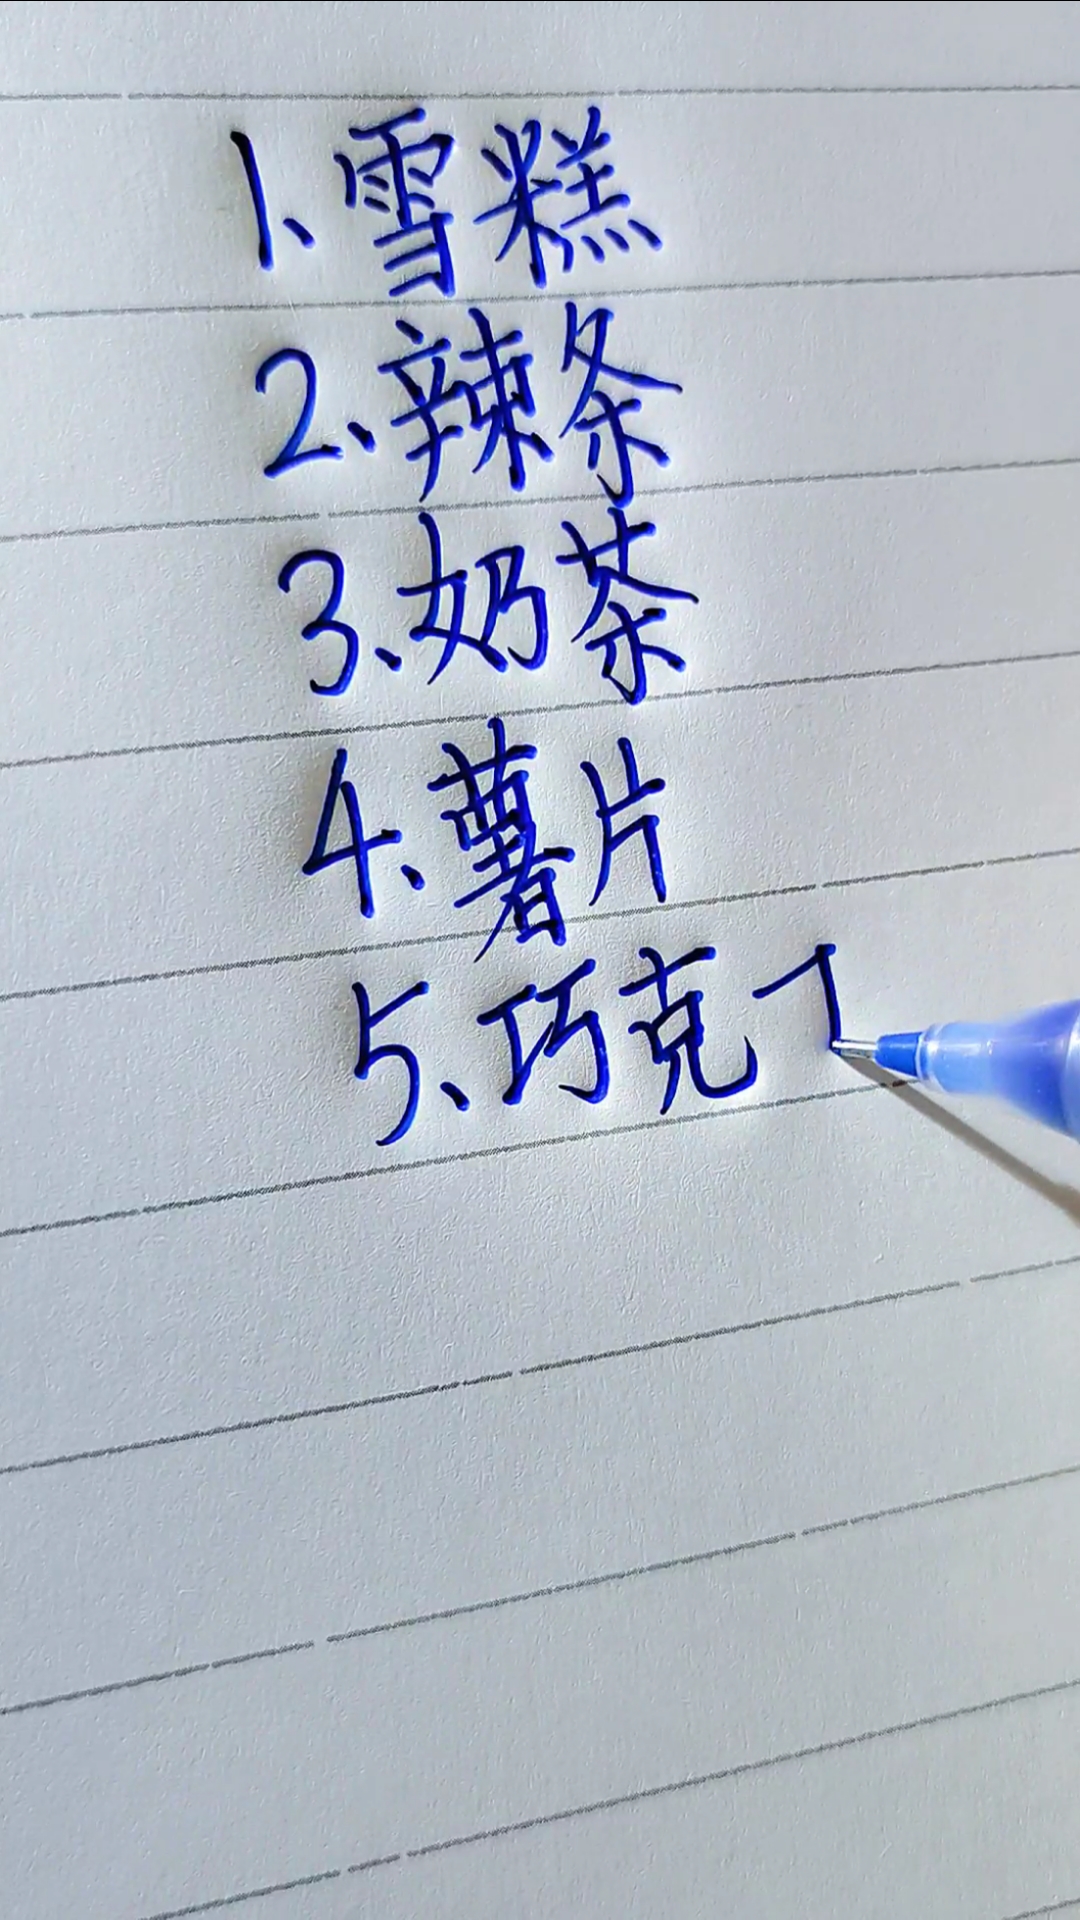 1、雪糕
2、辣条
3、奶茶
4、薯片
5、巧克